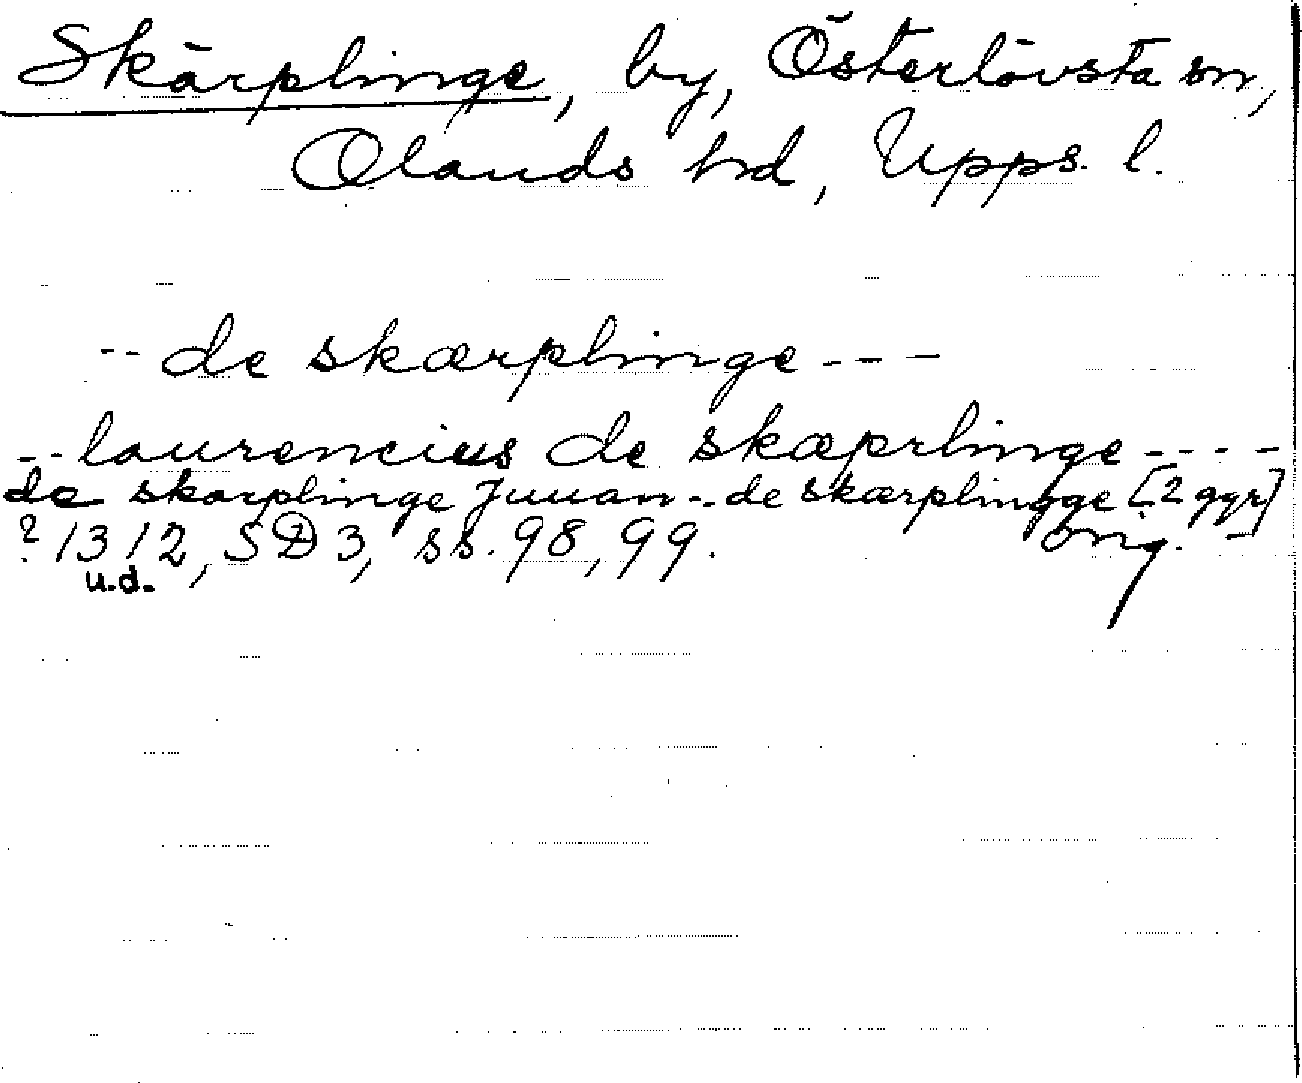 Skärplinge, by, Österlövsta sn,
Olands hd, Upps. l.
-- de skærplinge ---
-- laurencius de skæprlinge ----
de skærplinge Juuan -- de skærplingge [2 ggr]
? 1312, SD 3, ss. 98, 99. orig.
u.d.